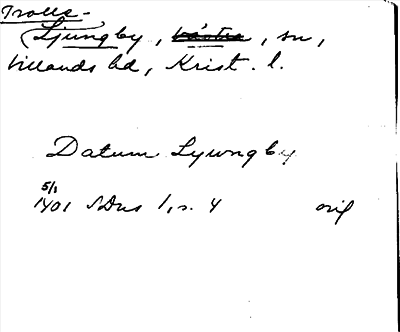 Trolle-
Ljungby, Västra, sn,
Villands hd, Krist. l.
Datum Lywngby
5/1
1401 SDns 1, s. 4 orig